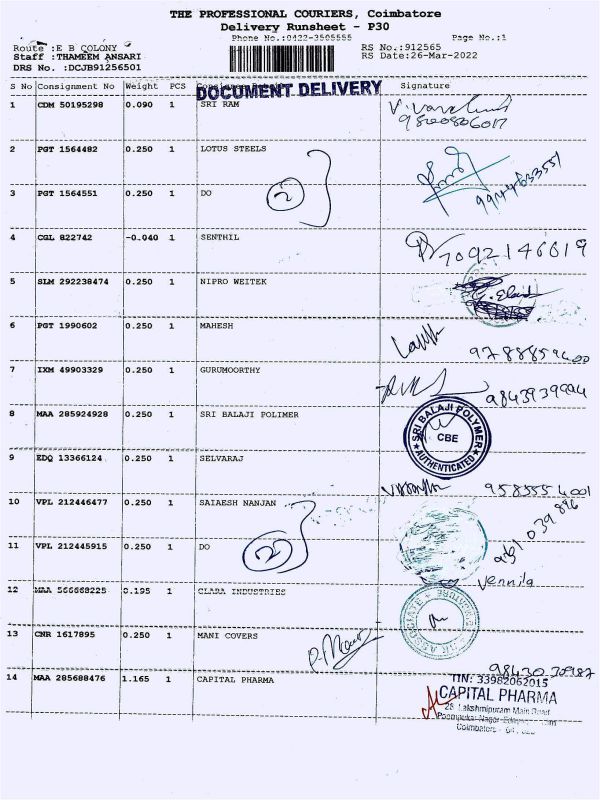 THE PROFESSIONAL COURIERS, Coimbatore
Delivery Runsheet - P30
Phone No.:0422-3505555 Page No.:1
Route :E B COLONY RS No.:912565
Staff :THAMEEM ANSARI RS Date:26-Mar-2022
DRS No. :DCJB91256501
DOCUMENT DELIVERY
S No Consignment No Weight PCS Signature
1 CDM 50195298 0.090 1 SRI RAM
9820806017
2 PGT 1564482 0.250 1 LOTUS STEELS
3 PGT 1564551 0.250 1 DO
2
9944633551
4 CGL 822742 -0.040 1 SENTHIL
7092146619
5 SLM 292238474 0.250 1 NIPRO WEITEK
6 PGT 1990602 0.250 1 MAHESH
9788859400
7 IXM 49903329 0.250 1 GURUMOORTHY
8 MAA 285924928 0.250 1 SRI BALAJI POLIMER
SRI BALAJI POLYMER
CBE
★ AUTHENTICATED ★
9 EDQ 13366124 0.250 1 SELVARAJ
9585554001
10 VPL 212446477 0.250 1 SAIAESH NANJAN
11 VPL 212445915 0.250 1 DO
2
Vennila
12 MAA 566668225 0.195 1 CLARA INDUSTRIES
13 CNR 1617895 0.250 1 MANI COVERS
9843030987
14 MAA 285688476 1.165 1 CAPITAL PHARMA
TIN: 33982062015
CAPITAL PHARMA
28 Lakshmipuram Main Road
Coimbatore